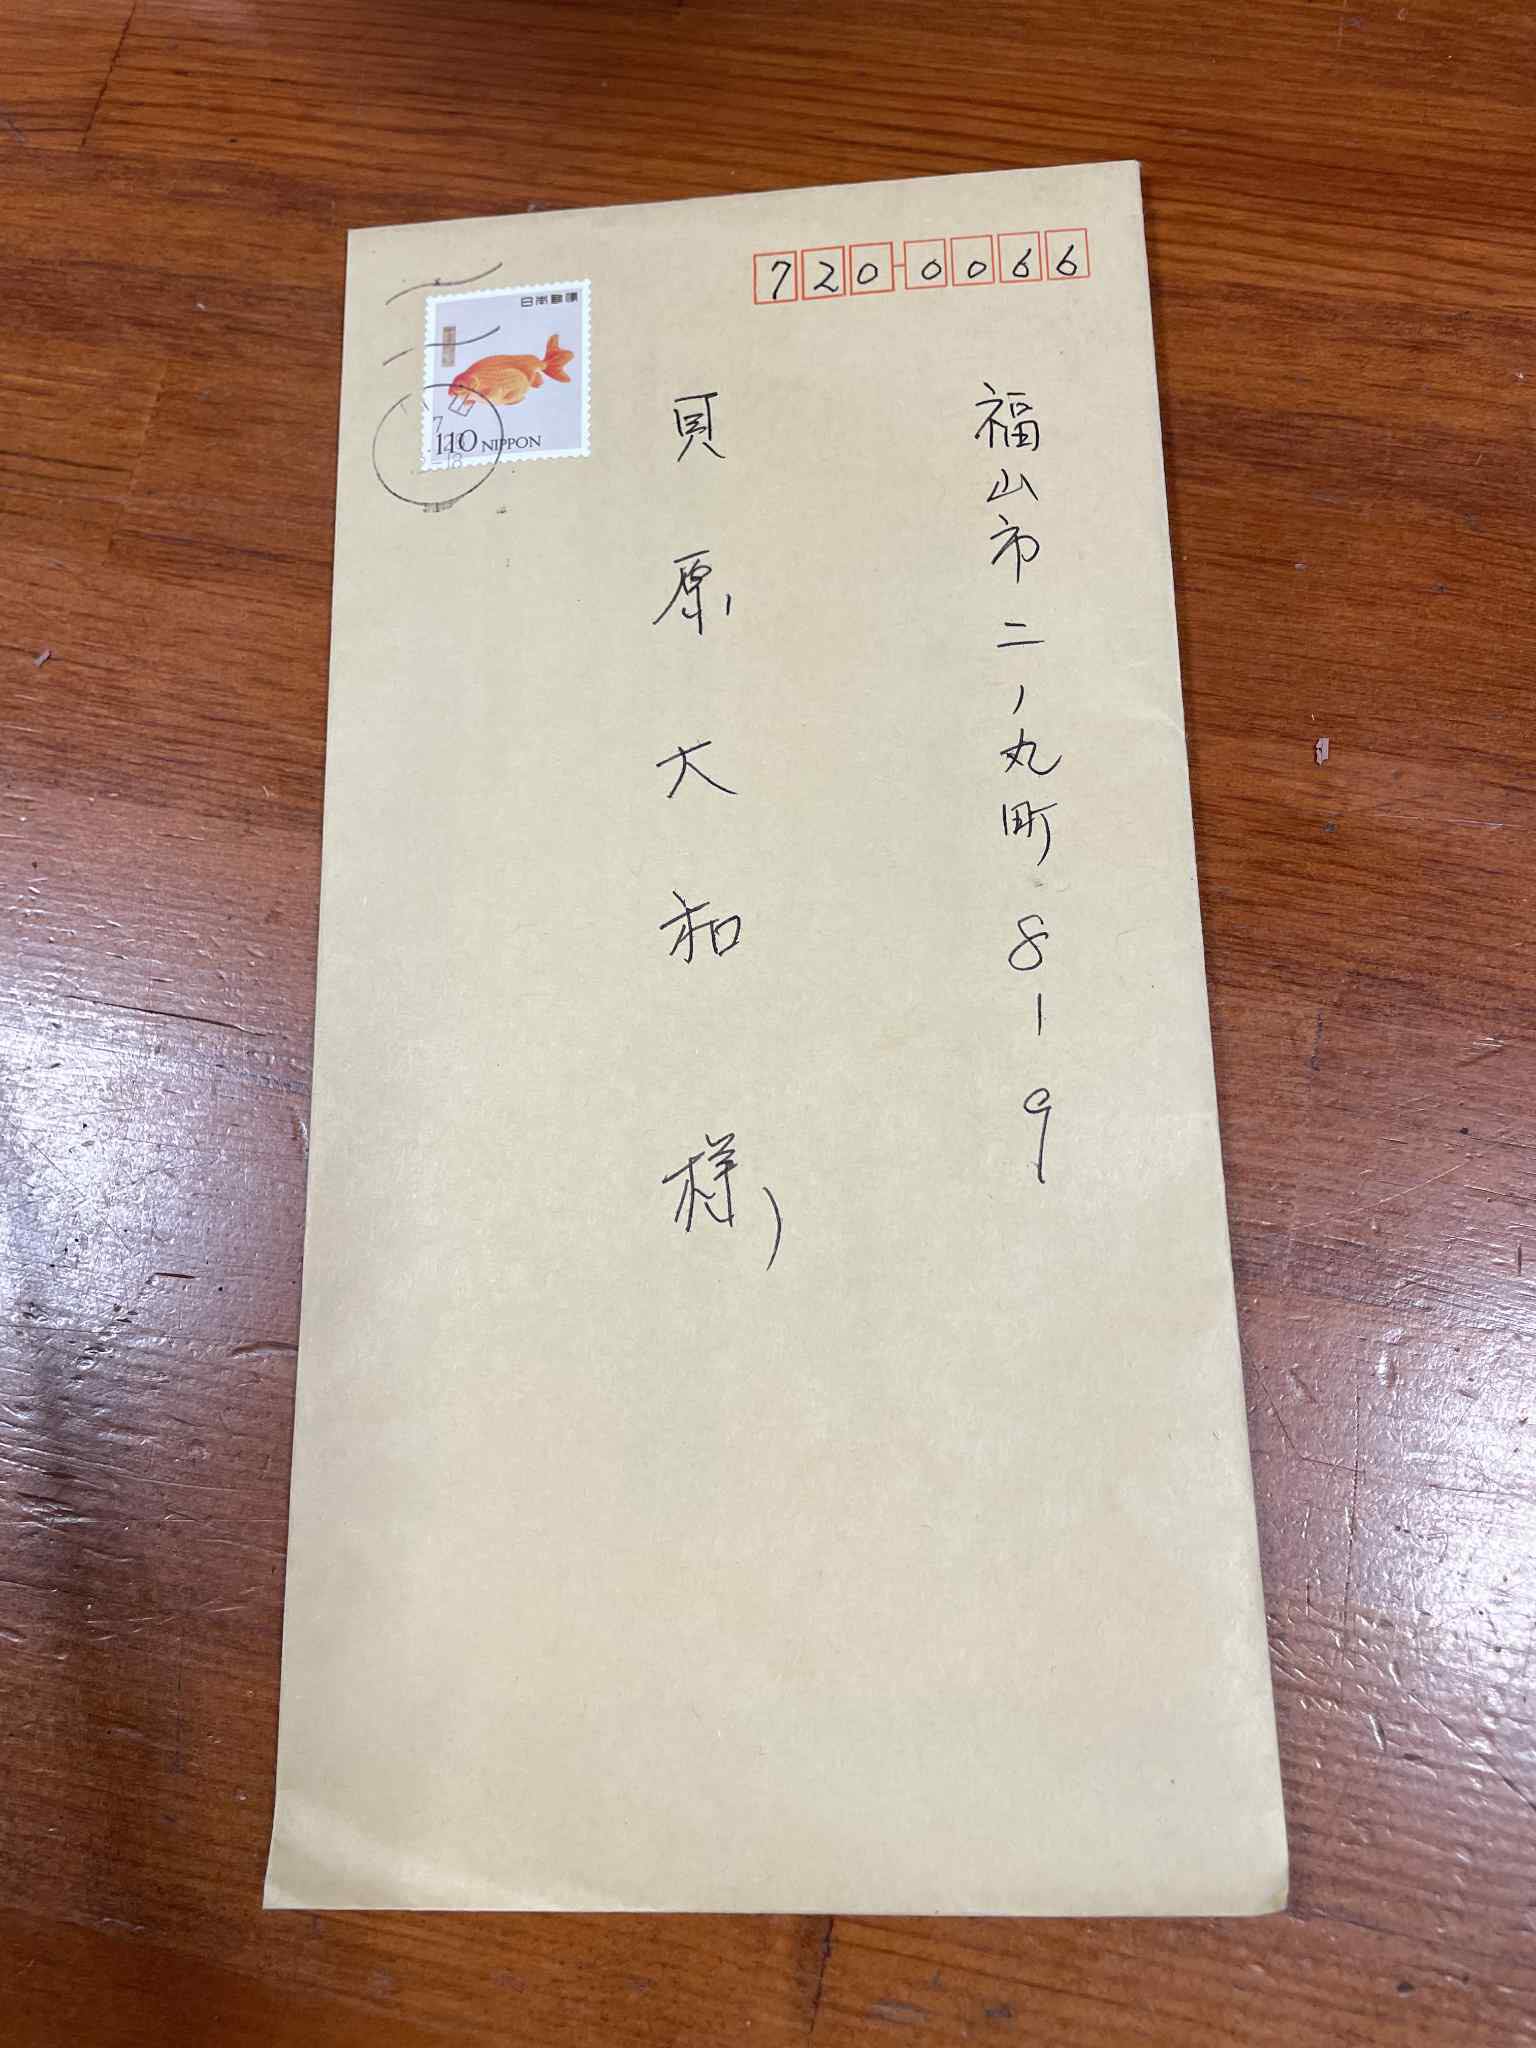 720-0066
福山市二ノ丸町8-9
貝原大和様
日本郵便
110 NIPPON
7